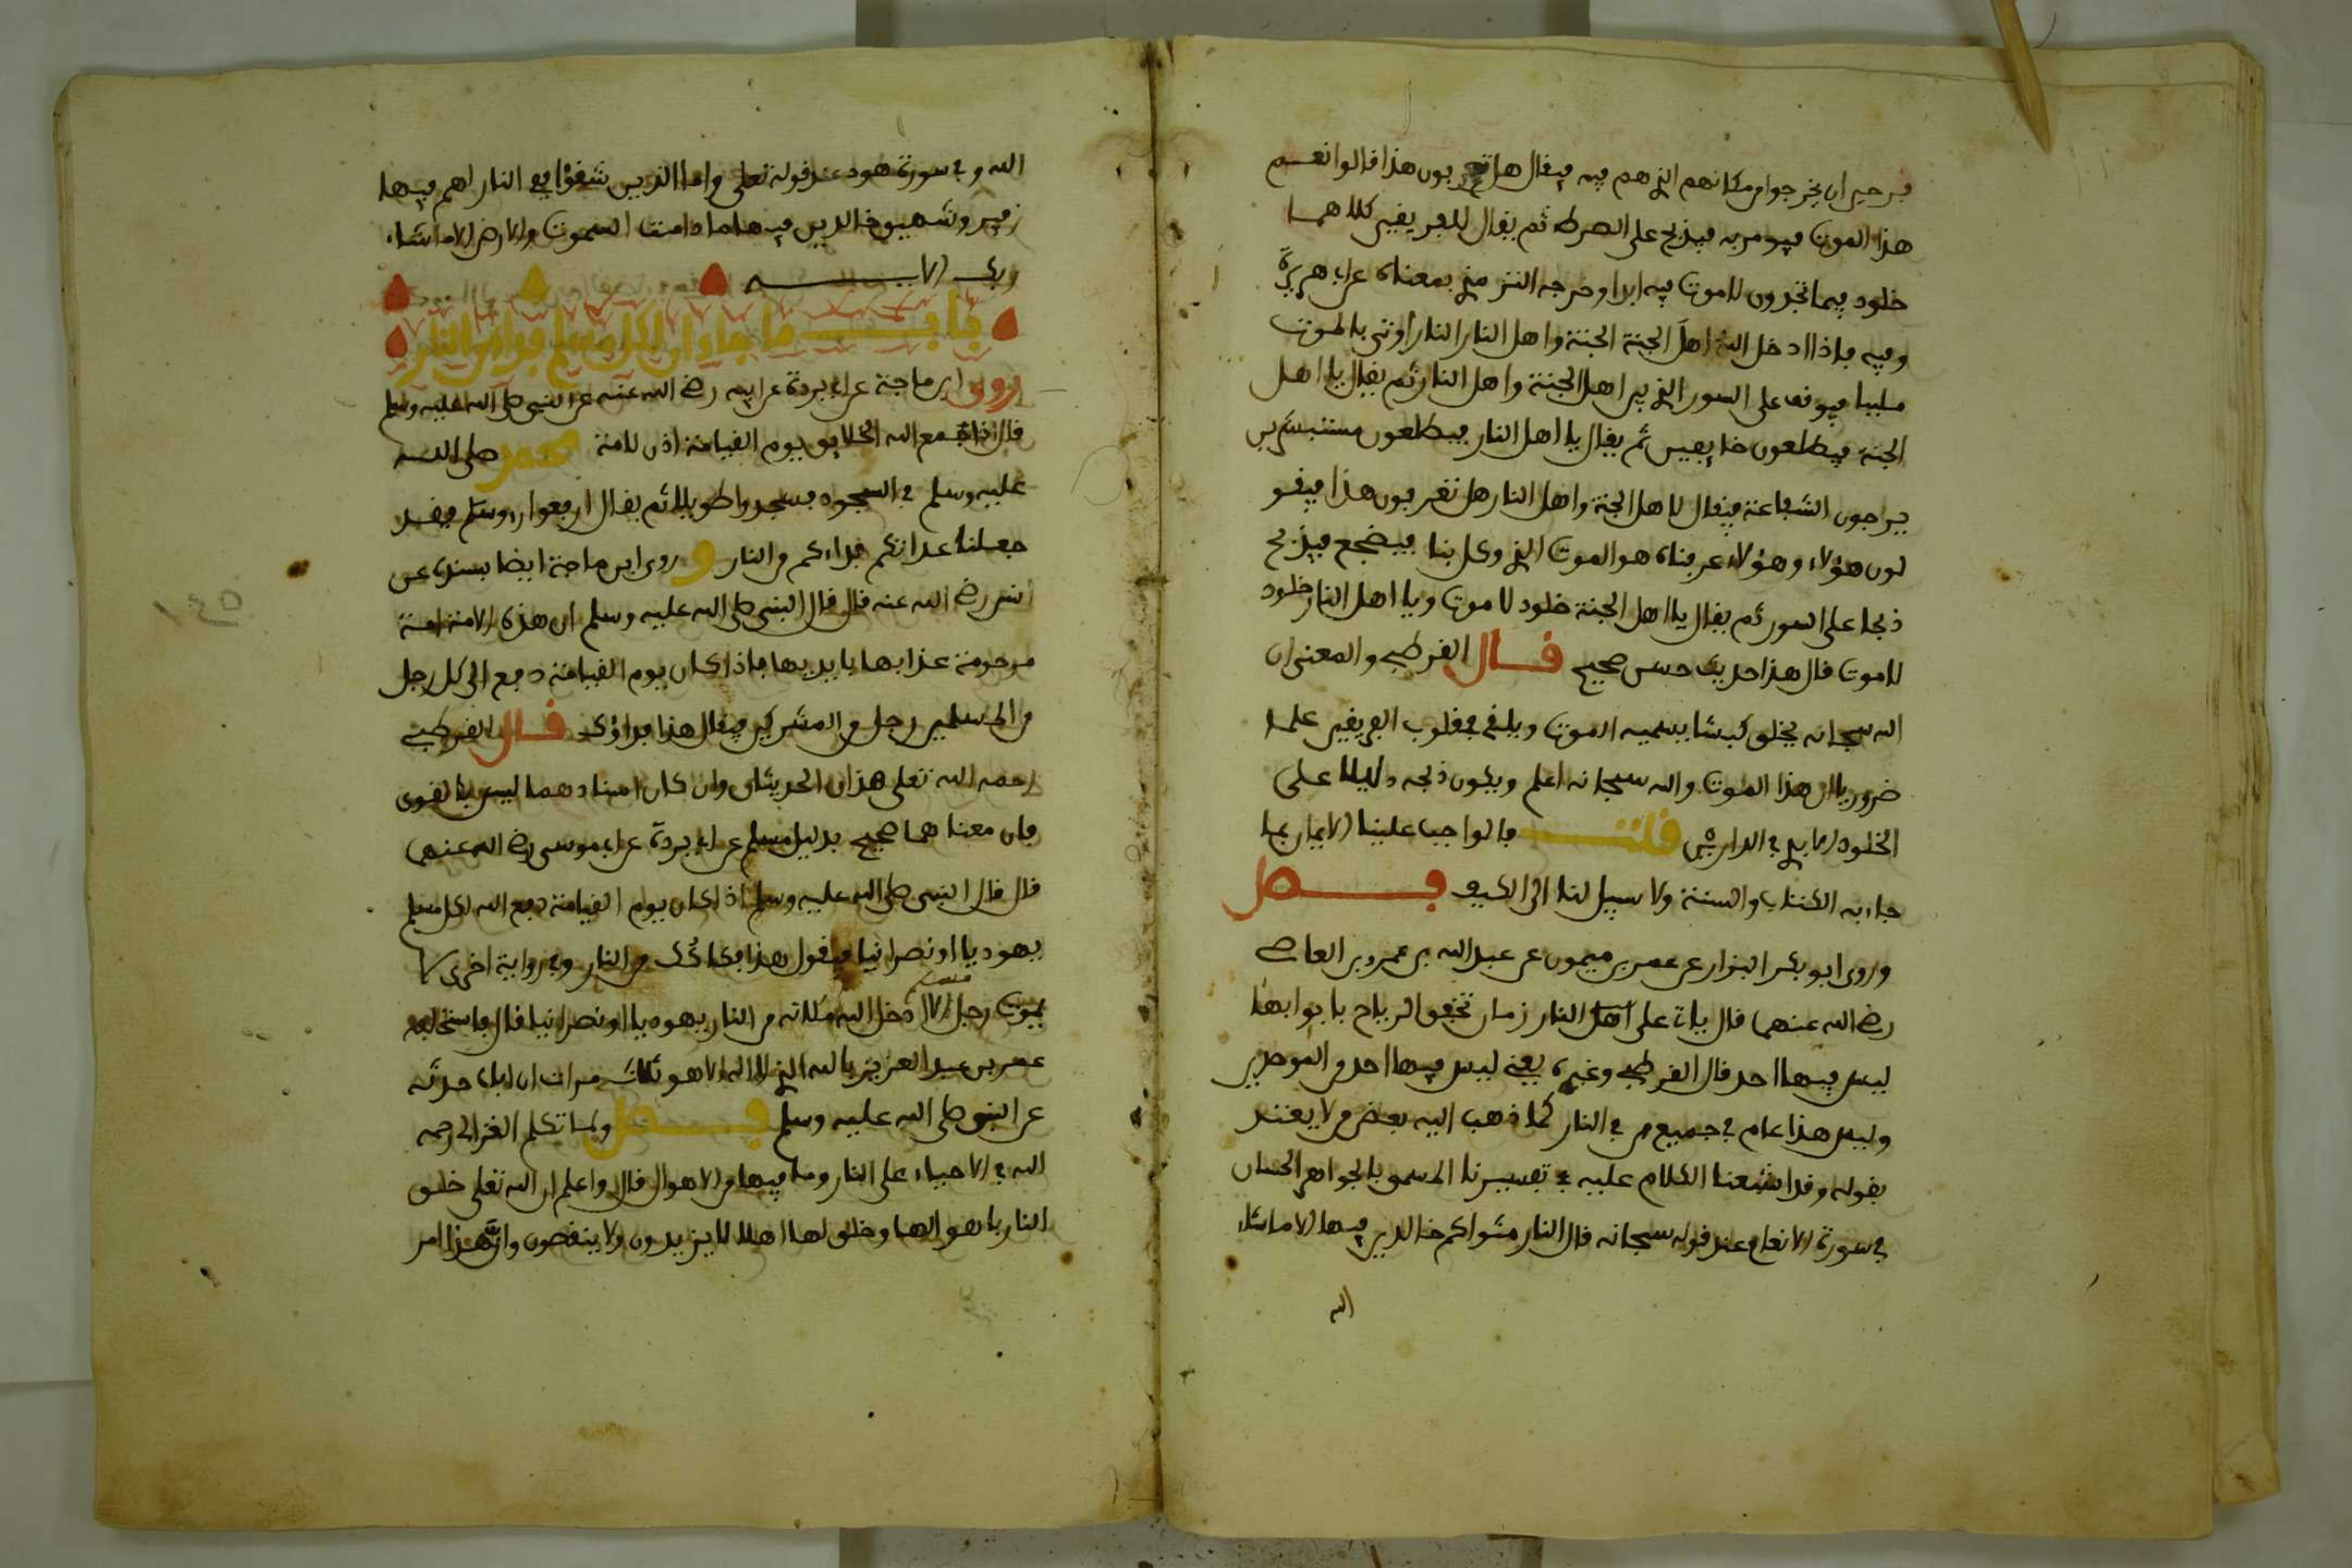 فرحين ان يخرجوا من مكانهم الذي هم فيه فيقال هل تعرفون هذا قالوا نعم
هذا الموت فيومر به فيذبح على الصرط ثم يقال للفريقين كلاهما
خلود فيما تجدون لا موت فيه ابدا وخرجه الترمذي بمعناه عن ابي هريرة
وفيه فاذا ادخل الله اهل الجنة الجنة واهل النار النار أوتي بالموت
ملببا فيوقف على السور الذي بين اهل الجنة واهل النار ثم يقال يا اهل
الجنة فيطلعون خايفين ثم يقال يا اهل النار فيطلعون مستبشرين
يرجون الشفاعة فيقال لاهل الجنة واهل النار هل تعرفون هذا فيقو
لون هؤلاء وهؤلاء عرفناه هو الموت الذي وكل بنا فيضجع فيذبح
ذبحا على السور ثم يقال يا اهل الجنة خلود لا موت ويا اهل النار خلود
لا موت قال هذا حديث حسن صحيح قال القرطبي والمعنى ان
الله سبحانه يخلق كبشا يسميه الموت ويلقي في قلوب الفريقين علما
ضروريا ان هذا الموت والله سبحانه اعلم ويكون ذبحه دليلا على
الخلود الابدي في الدارين قلت فالواجب علينا الايمان بما
جاء به الكتاب والسنة ولا سبيل لنا الى الكيف فصل
وروى ابو بكر البزار عن عمر بن ميمون عن عبد الله بن عمرو بن العاصي
رضي الله عنهما قال يات على اهل النار زمان تخفق الرياح بابوابها
ليس فيها احد قال القرطبي وغيره يعني ليس فيها احد من الموحدين
وليس هذا عام في جميع من في النار كما ذهب اليه بعض من لا يعتد
بقوله وقد اشبعنا الكلام عليه في تفسيرنا المسمى بالجواهر الحسان
في سورة الانعام عند قوله سبحانه قال النار مثواكم خالدين فيها الا ما شاء
الله
الله وفي سورة هود عند قوله تعلى واما الذين شقوا ففي النار لهم فيها
زفير وشهيق خالدين فيها ما دامت السموت والارض الا ما شاء
ربك الاية
باب ما جاء ان لكل مسلم فداء من النار
روى ابن ماجة عن ابي بردة عن ابيه رضي الله عنه عن النبي صلى الله عليه وسلم
قال اذا جمع الله الخلايق يوم القيامة اذن لامة محمد صلى الله
عليه وسلم في السجود فسجدوا طويلا ثم يقال ارفعوا رءوسكم فقد
جعلنا عدتكم فداءكم من النار وروى ابن ماجة ايضا بسنده عن
انس رضي الله عنه قال قال النبي صلى الله عليه وسلم ان هذه الامة امة
مرحومة عذابها بايديها فاذا كان يوم القيامة دفع الى كل رجل
من المسلمين رجل من المشركين فيقال هذا فداؤك قال القرطبي
رحمه الله تعلى هذان الحديثان وان كان اسنادهما ليس بالقوى
فان معناهما صحيح بدليل مسلم عن ابي بردة عن ابي موسى رضي الله عنهما
قال قال النبي صلى الله عليه وسلم اذا كان يوم القيامة دفع الله لكل مسلم
يهوديا او نصرانيا فيقول هذا فكاكك من النار وفي رواية اخرى لا
مسلم
يموت رجل الا ادخل الله مكانه من النار يهوديا او نصرانيا قال فاستحلفه
عمر بن عبد العزيز بالله الذي لا اله الا هو ثلاث مرات ان اباه حدثه
عن النبي صلى الله عليه وسلم فصل ولما تكلم الغزالي رحمه
الله في الاحياء على النار وما فيها من الاهوال قال واعلم ان الله تعلى خلق
النار باهوالها وخلق لها اهلا لا يزيدون ولا ينقصون وان هذا امر
١٤٥